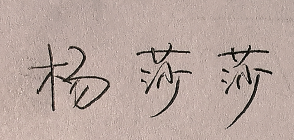 杨莎莎